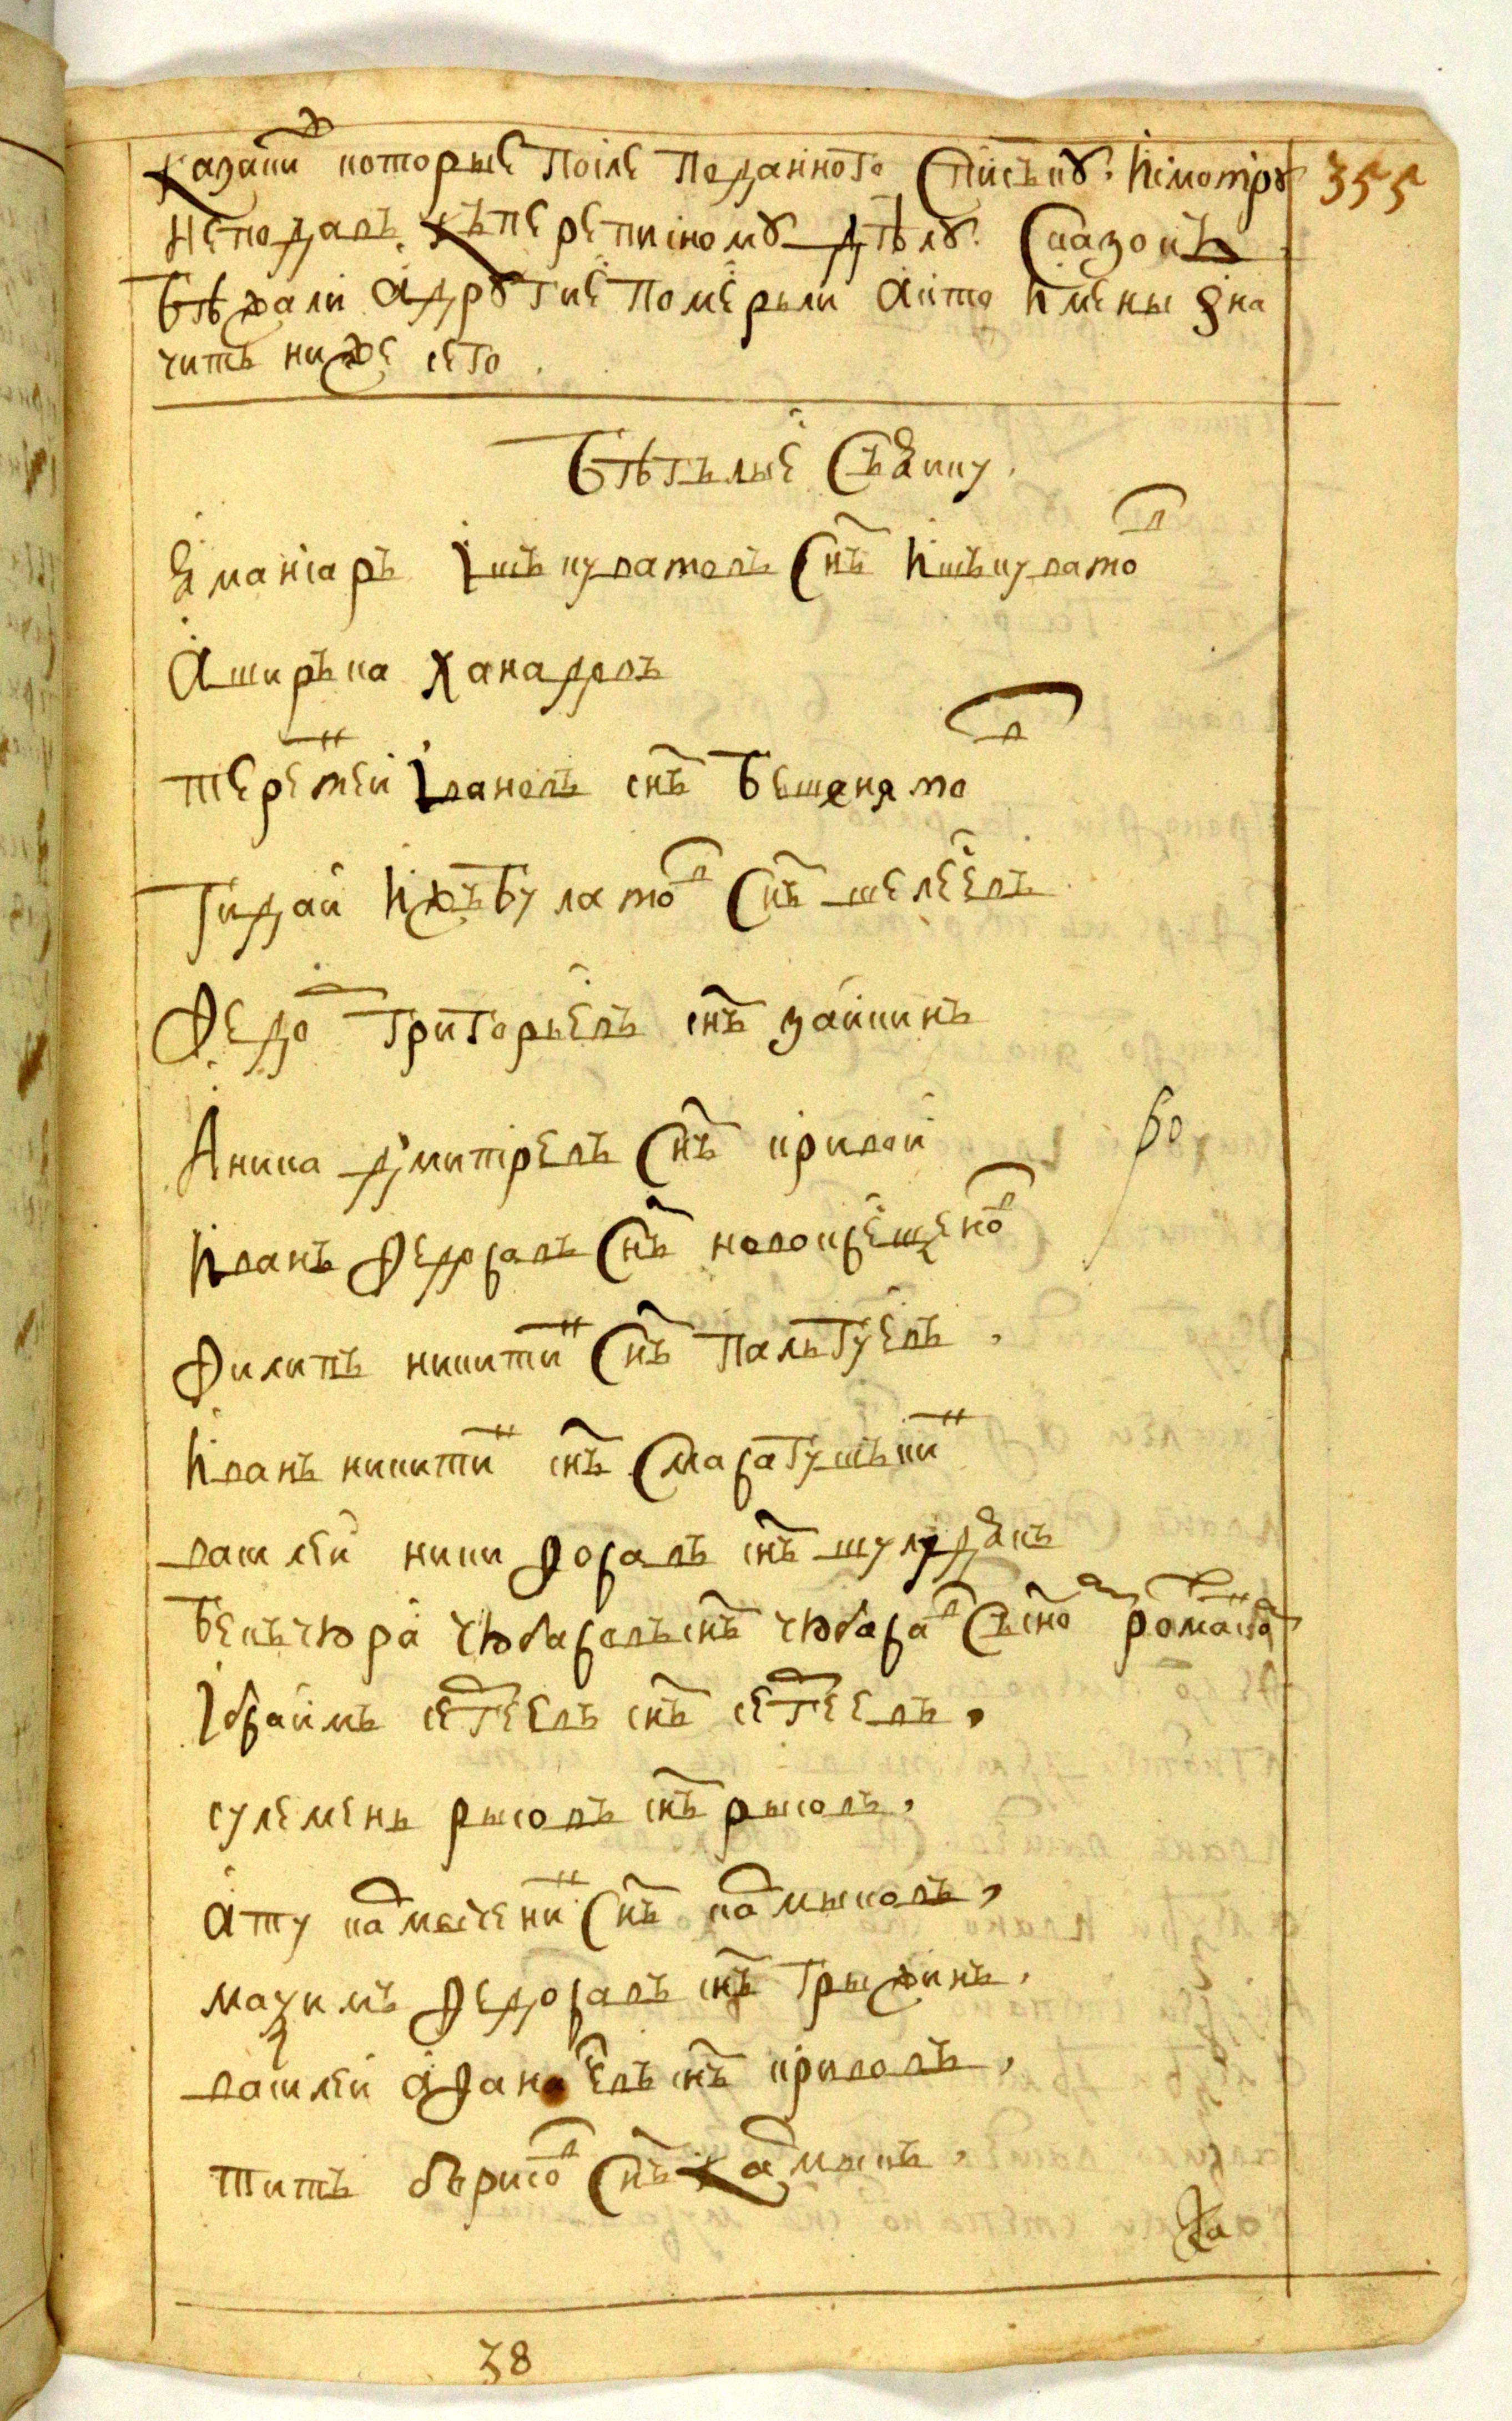 Казаки которые после поданного списъку. и смотру 355
неподалъ. къпереписному дѣлу. Сказокъ
бѣжали а другие померьли а кто имены зна
чить ниже сего.
Бѣгълые съ Яику.
Ямансаръ Ишъкуватовъ снъ ишъкуватов
Аширъка Ханадровъ
терентеи Ивановъ снъ бешенято
гидаи ижъбулатов снъ шелеевъ
Федор григорьевъ снъ заикинъ
Аника дмитревъ снъ кривои
во
иванъ Федоравъ снъ новокрещенов
Филипъ никитин снъ пальгуевъ.
иванъ никитин снъ Смарагушъкин
василеи никифоравъ снъ шулудякъ
бекъчюра чюбаровъ снъ чюбарав съсно романов
Ибраимъ сегеевъ снъ сегеевъ,
сулемень рысовъ снъ рысовъ,
ату камысенин снъ камышовъ,
мазимъ Федоравъ снъ грыжинъ.
василеи аѳанаевъ снъ кривовъ,
титъ бърисов снъ Камыкъ,
Ка
38